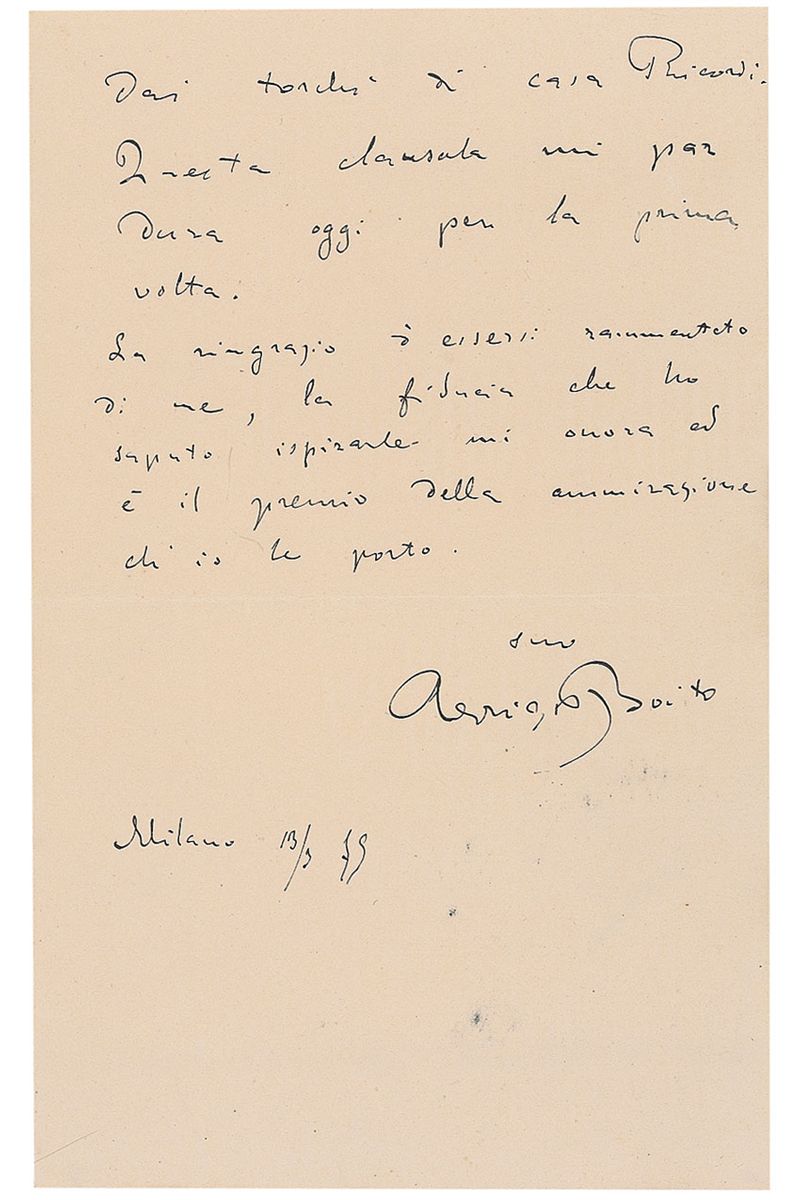 Dai torchi di casa Ricordi.
Questa clausola mi par
dura oggi per la prima
volta.
La ringrazio d'essersi rammentato
di me, la fiducia che ho
saputo ispirarle mi onora ed
è il premio della ammirazione
ch'io le porto.
suo
Arrigo Boito
Milano 13/3 79